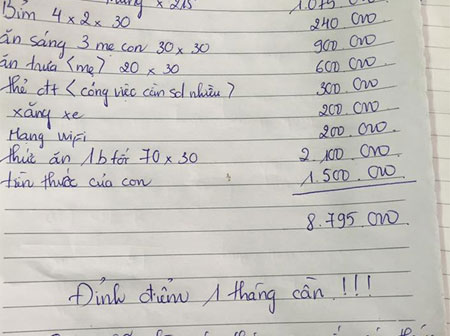 x 215 1.075 000
Bỉm 4 x 2 x 30 240 000
ăn sáng 3 mẹ con 30 x 30 900 000
ăn trưa <mẹ> 20 x 30 600 000
thẻ đt < công việc cần sd nhiều > 300.000
xăng xe 200.000
Mạng wifi 200.000.
thức ăn 1b tối 70 x 30 2.100.000
tiền thuốc của con 1.500.000
8.795 000
Đỉnh điểm 1 tháng cần !!!